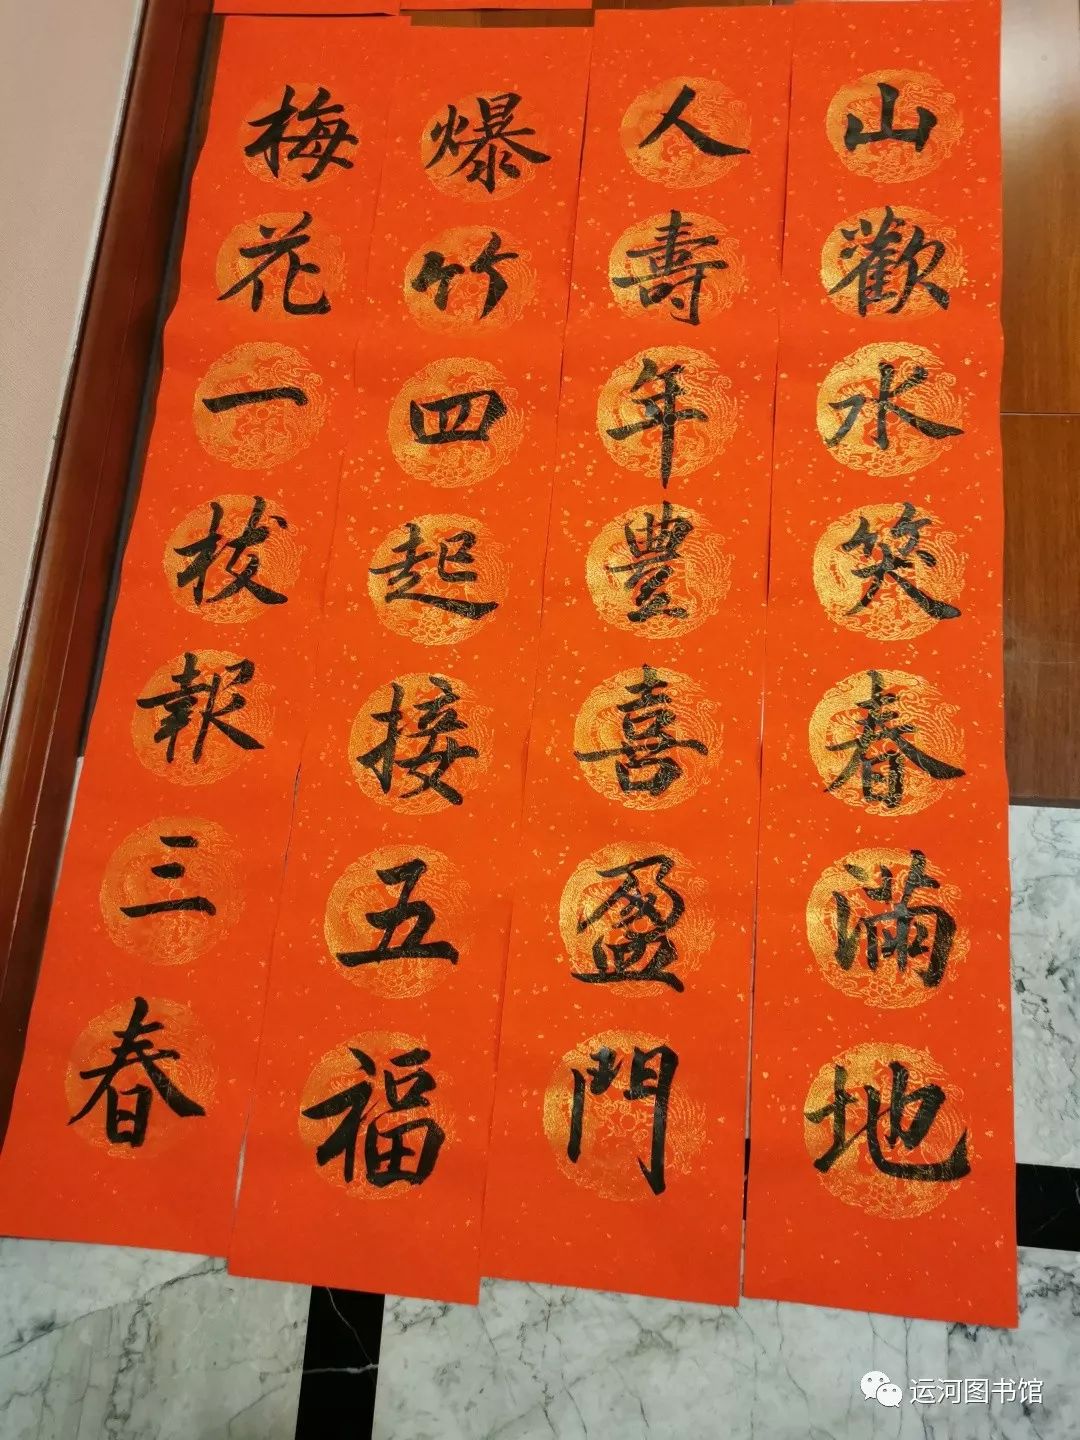 山歡水笑春滿地
人壽年豐喜盈門
爆竹四起接五福
梅花一枝報三春
运河图书馆